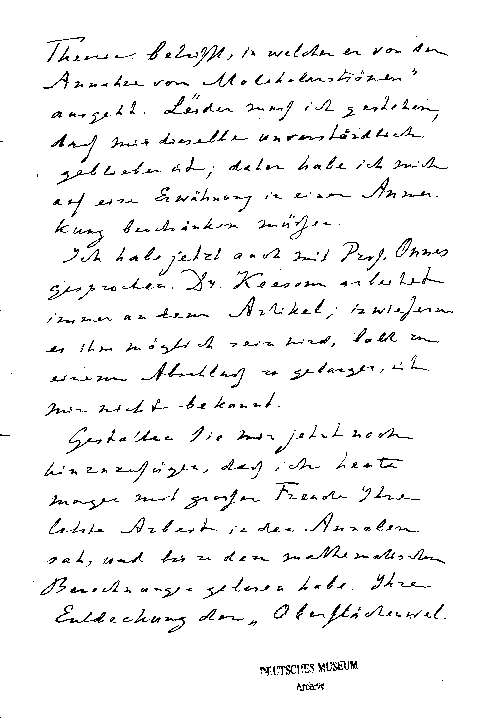 Theorie betrifft, in welcher er von den
Annahme von „Molekularströmen"
ausgeht. Leider muß ich gestehen,
daß mir dieselbe unverständlich
geblieben ist; daher habe ich mich
auf eine Erwähnung in einer Anmer-
kung beschränken müssen.
Ich habe jetzt auch mit Prof. Onnes
gesprochen. Dr. Keesom arbeitet
immer an dem Artikel; inwiefern
es ihm möglich sein wird, bald zu
einem Abschluß zu gelangen, ist
mir nicht bekannt.
Gestatten Sie mir jetzt noch
hinzuzufügen, daß ich heute
morgen mit großer Freude Ihre
letzte Arbeit in den Annalen
sah, und bis zu den mathematischen
Berechnungen gelesen habe. Ihre
Entdeckung der „Oberflächenwel-
DEUTSCHES MUSEUM
Archiv